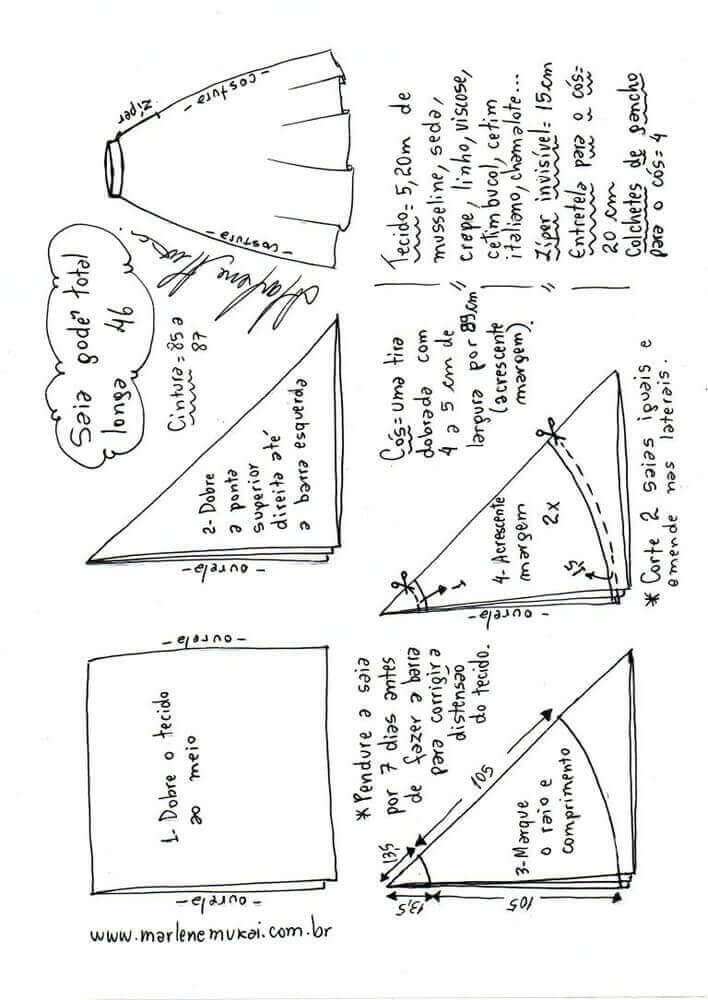 Saia godê total
longa 46
Cintura = 85 a
87
zíper
- costura -
- costura -
Marlene Mukai
Tecido = 5,20m de
musseline, seda,
crepe, linho, viscose,
cetim bucol, cetim
italiano, chamalote...
Zíper invisível = 15 cm
Entretela para o cós =
20 cm
Colchetes de gancho
para o cós = 4
1- Dobre o tecido
ao meio
- ourela -
- ourela -
2- Dobre
a ponta
superior
direita até
a barra esquerda
- ourela -
* Pendure a saia
por 7 dias antes
de fazer a barra
para corrigir a
distensão
do tecido.
13,5
105
13,5
105
3- Marque
o raio e
comprimento
Cós = uma tira
dobrada com
4 a 5 cm de
largura por 89 cm
(acrescente
margem).
4- Acrescente
margem
2x
1
1,5
- ourela -
* Corte 2 saias iguais e
emende nas laterais.
www.marlenemukai.com.br